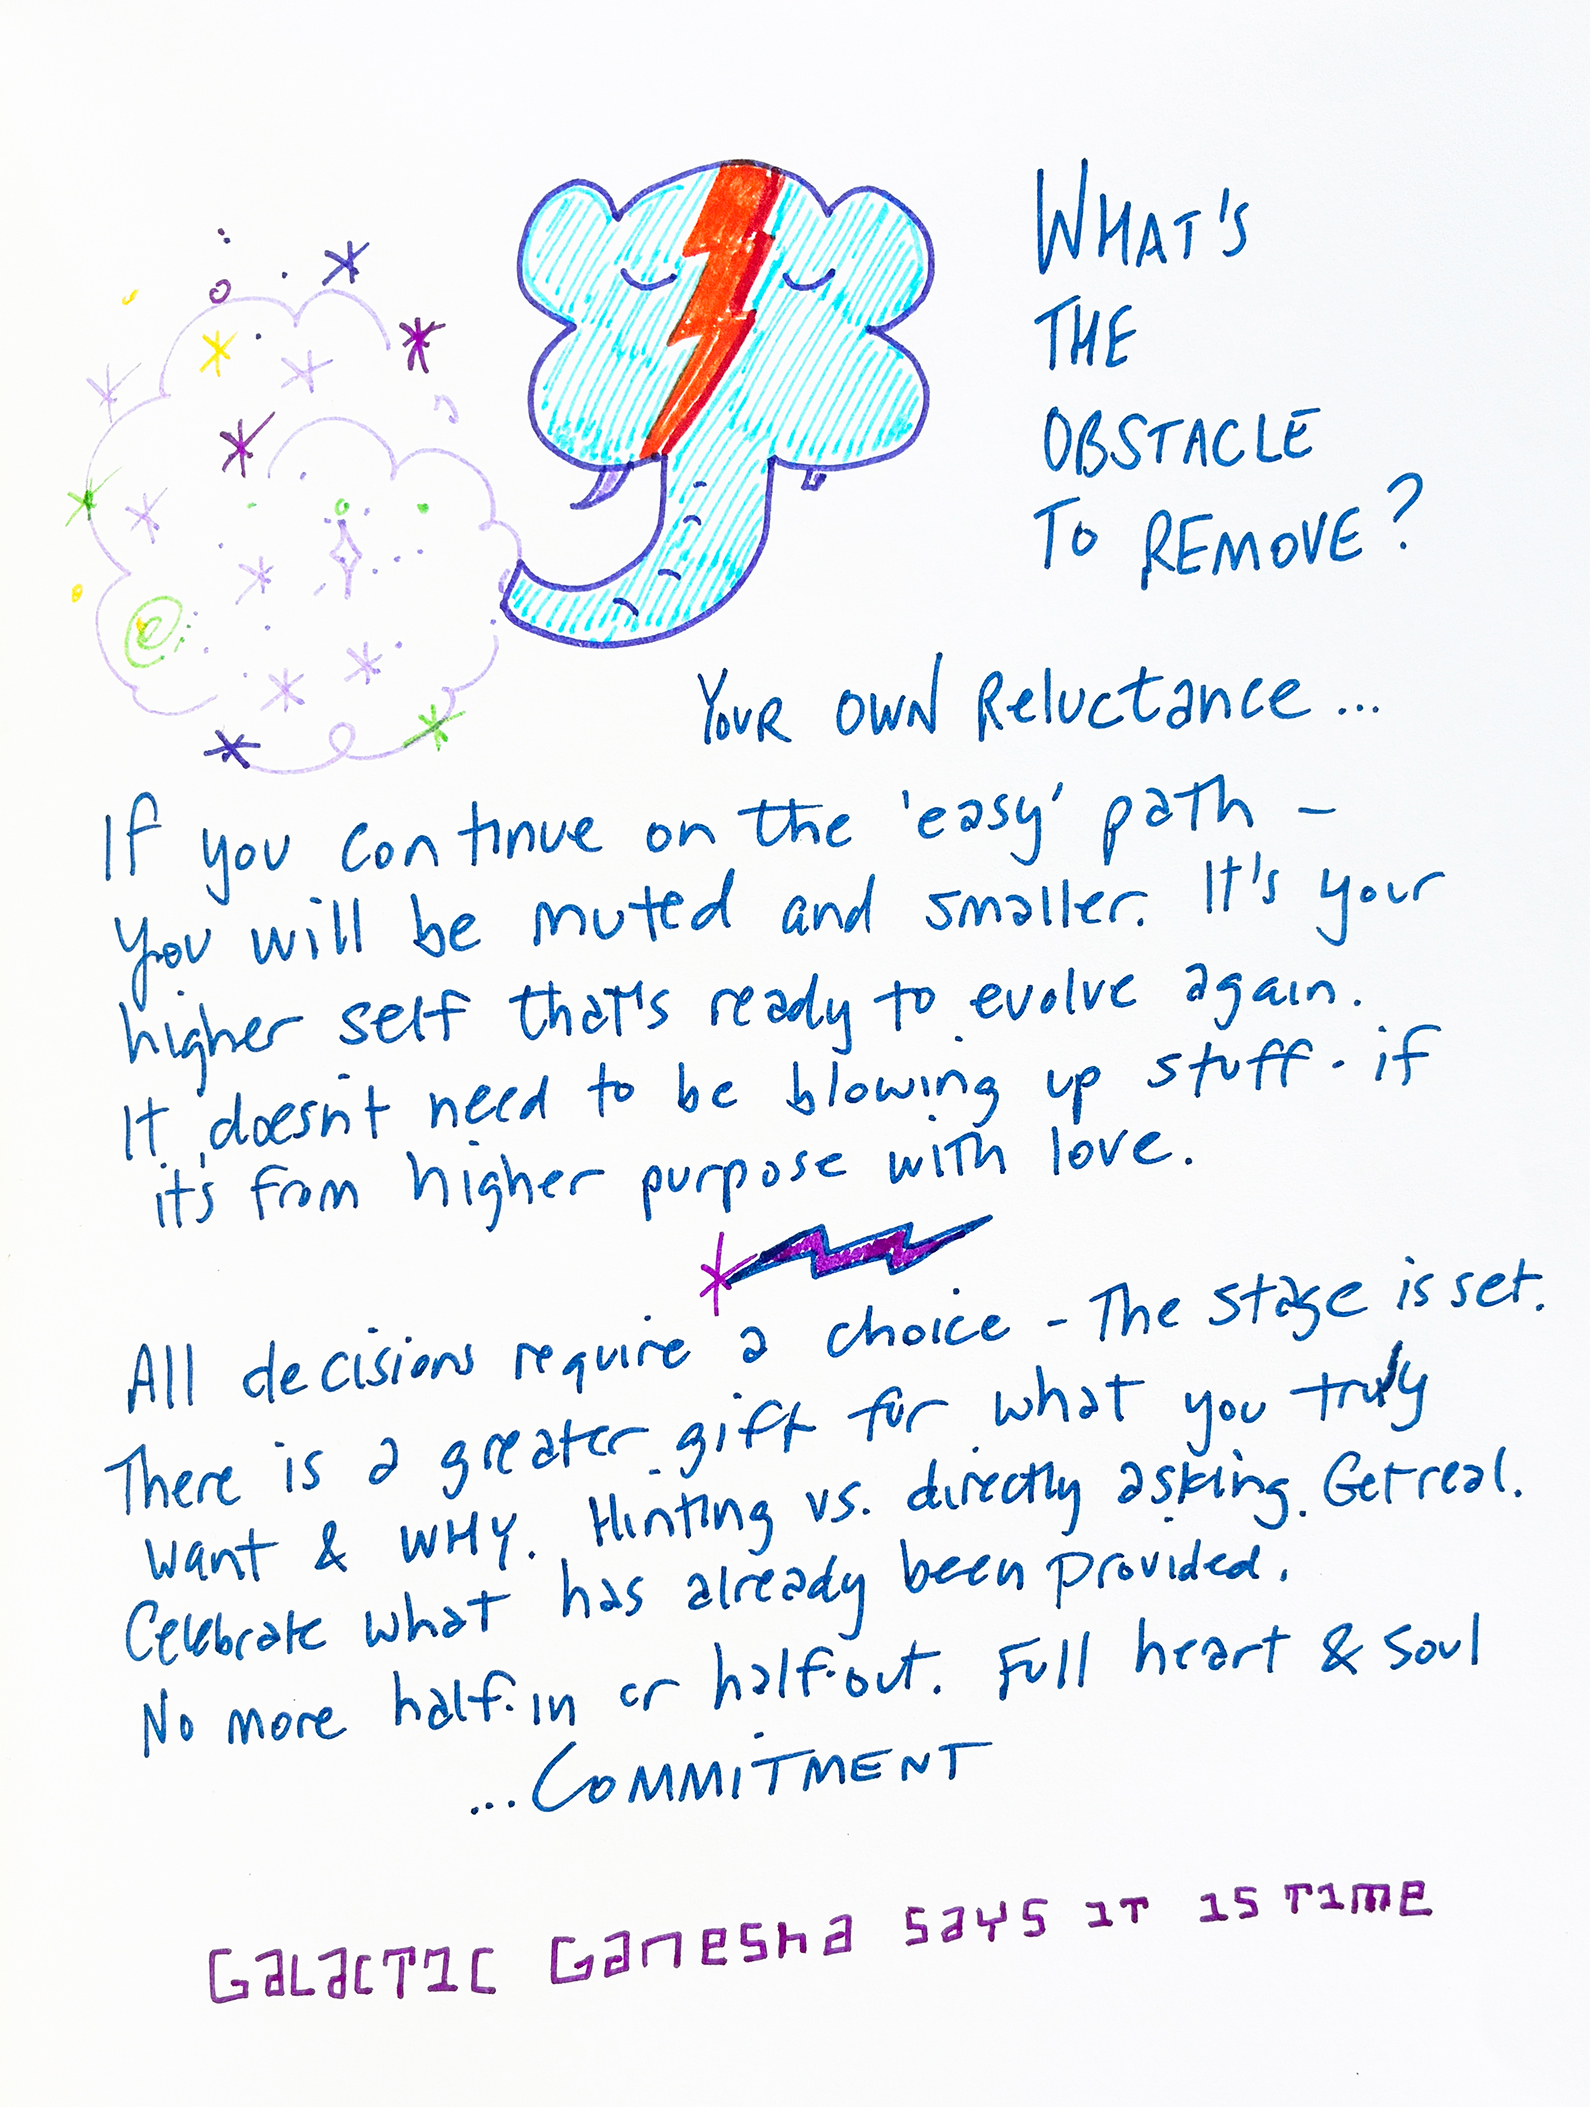 WHAT'S
THE
OBSTACLE
TO REMOVE?
YOUR OWN Reluctance...
If you continue on the 'easy' path -
you will be muted and smaller. It's your
higher self that's ready to evolve again.
It doesn't need to be blowing up stuff - if
it's from higher purpose with love.
All decisions require a choice - The stage is set.
There is a greater gift for what you truly
want & WHY. Hinting vs. directly asking. Get real.
Celebrate what has already been provided.
No more half-in or half-out. Full heart & soul
...COMMITMENT
Galactic Ganesha says it is time